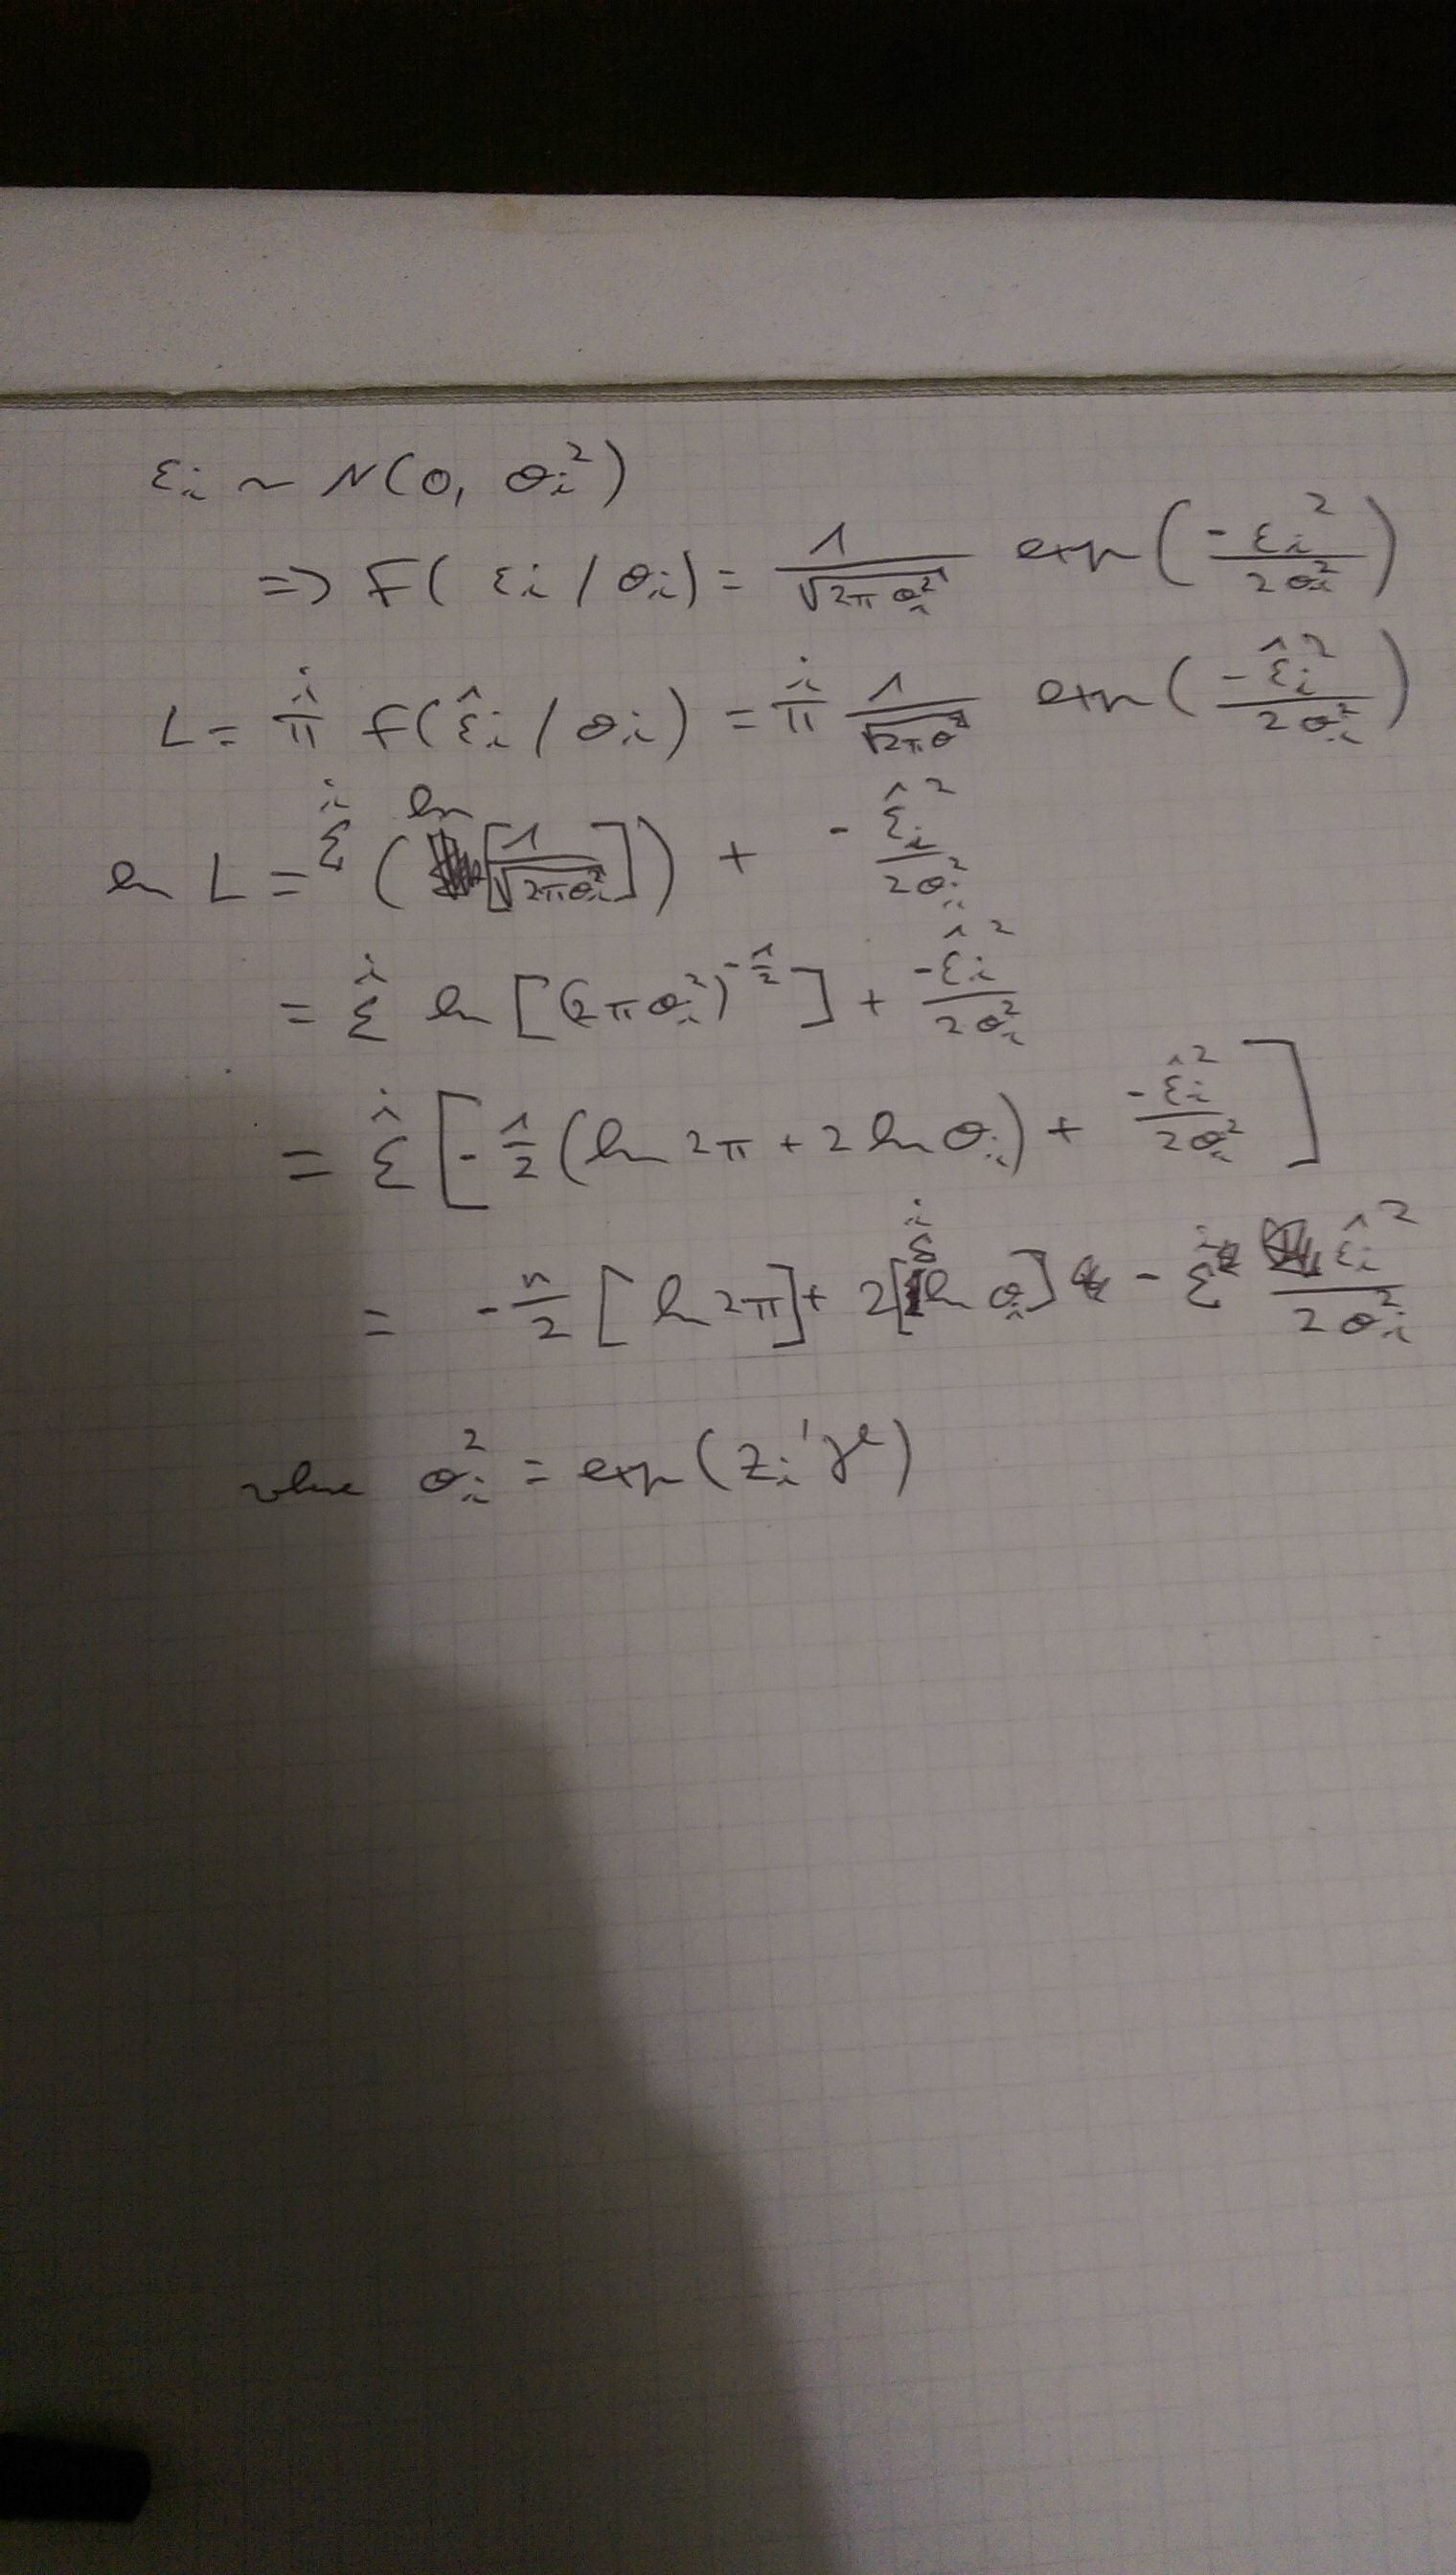 εi ~ N(0, σi²)
=> F(εi / σi) = 1/√(2π σi²) exp(-εi²/2σi²)
L = π^i f(ε̂i / σi) = π^i 1/√(2πσ²) exp(-ε̂i²/2σi²)
ln L = Σ^i (ln [1/√(2πσi²)]) + -ε̂i²/2σi²
= Σ^i ln [(2πσi²)^-1/2] + -ε̂i²/2σi²
= Σ^i [-1/2 (ln 2π + 2 ln σi) + -ε̂i²/2σi²]
= -n/2 [ln 2π] + 2[Σ^i ln σi] - Σ^i ε̂i²/2σi²
where σi² = exp(zi'γ)